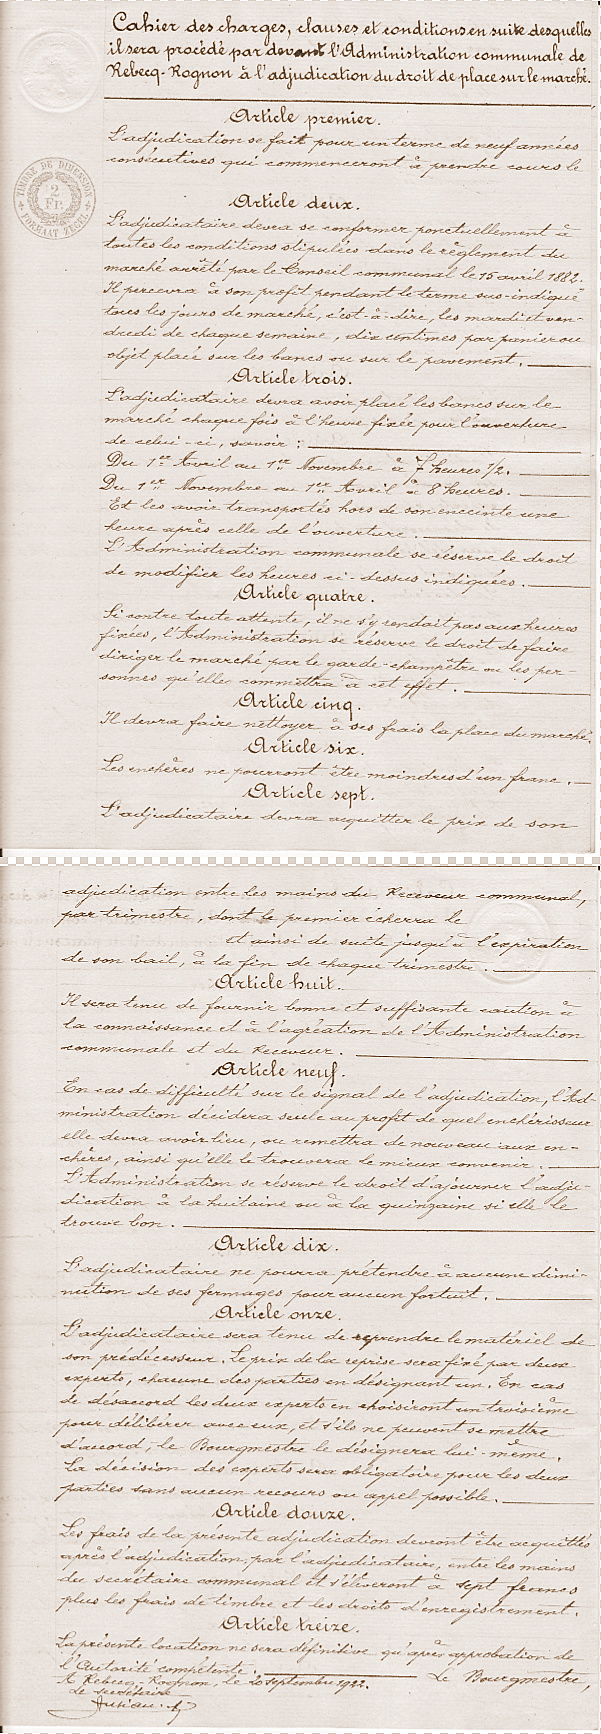 Cahier des charges, clauses et conditions en suite desquelles
il sera procédé par devant l'Administration communale de
Rebecq-Rognon à l'adjudication du droit de place sur le marché.
TIMBRE DE DIMENSION
2
FR.
FORMAAT ZEGEL
Article premier.
L'adjudication se fait pour un terme de neuf années
consécutives qui commenceront à prendre cours le
Article deux.
L'adjudicataire devra se conformer ponctuellement à
toutes les conditions stipulées dans le règlement du
marché arrêté par le Conseil communal le 15 avril 1882.
Il percevra à son profit pendant le terme sus-indiqué
tous les jours de marché, c'est-à-dire, les mardi et ven-
dredi de chaque semaine, dix centimes par panier ou
objet placé sur les bancs ou sur le pavement.
Article trois.
L'adjudicataire devra avoir placé les bancs sur le
marché chaque fois à l'heure fixée pour l'ouverture
de celui-ci, savoir :
Du 1er Avril au 1er Novembre à 7 heures 1/2.
Du 1er Novembre au 1er Avril à 8 heures.
Et les avoir transportés hors de son enceinte une
heure après celle de l'ouverture.
L'Administration communale se réserve le droit
de modifier les heures ci-dessus indiquées.
Article quatre.
Si contre toute attente, il ne s'y rendait pas aux heures
fixées, l'Administration se réserve le droit de faire
diriger le marché par le garde-champêtre ou les per-
sonnes qu'elle commettra à cet effet.
Article cinq.
Il devra faire nettoyer à ses frais la place du marché.
Article six.
Les enchères ne pourront être moindres d'un franc.
Article sept.
L'adjudicataire devra acquitter le prix de son
adjudication entre les mains du Receveur communal,
par trimestre, dont le premier écherra le
et ainsi de suite jusqu'à l'expiration
de son bail, à la fin de chaque trimestre.
Article huit.
Il sera tenu de fournir bonne et suffisante caution à
la connaissance et à l'agréation de l'Administration
communale et du Receveur.
Article neuf.
En cas de difficulté sur le signal de l'adjudication, l'Ad-
ministration décidera seule au profit de quel enchérisseur
elle devra avoir lieu, ou remettra de nouveau aux en-
chères, ainsi qu'elle le trouvera le mieux convenir.
L'Administration se réserve le droit d'ajourner l'adju-
dication à la huitaine ou à la quinzaine si elle le
trouve bon.
Article dix.
L'adjudicataire ne pourra prétendre à aucune dimi-
nution de ses fermages pour aucun fortuit.
Article onze.
L'adjudicataire sera tenu de reprendre le matériel de
son prédécesseur. Le prix de la reprise sera fixé par deux
experts, chacune des parties en désignant un. En cas
de désaccord les deux experts en choisiront un troisième
pour délibérer avec eux, et s'ils ne peuvent se mettre
d'accord, le Bourgmestre le désignera lui-même.
La décision des experts sera obligatoire pour les deux
parties sans aucun recours ou appel possible.
Article douze.
Les frais de la présente adjudication devront être acquittés
après l'adjudication, par l'adjudicataire, entre les mains
du secrétaire communal et s'élèveront à sept francs
plus les frais de timbre et les droits d'enregistrement.
Article treize.
La présente location ne sera définitive qu'après approbation de
l'Autorité compétente.
A Rebecq-Rognon, le 20 septembre 1922.
Le Bourgmestre,
Le secrétaire